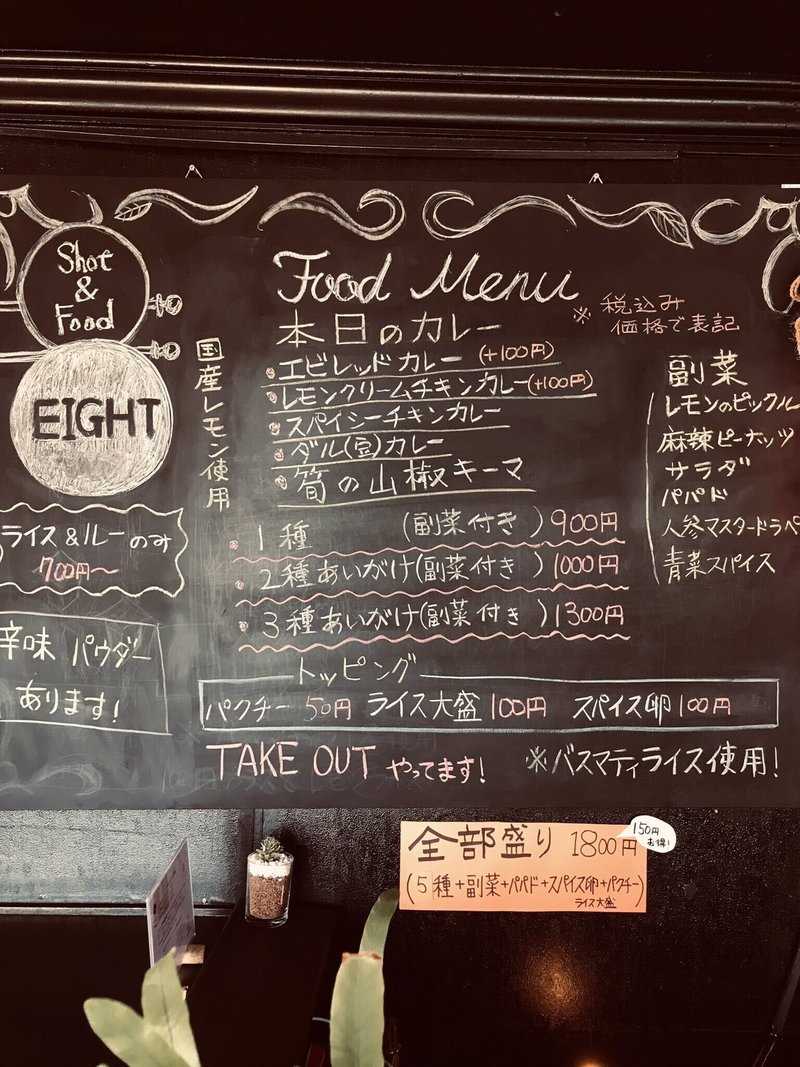 Shot
&
Food
EIGHT
ライス&ルーのみ
700円〜
辛味 パウダー
あります!
国産レモン使用
Food Menu
※ 税込み
価格で表記
本日のカレー
エビレッドカレー (+100円)
レモンクリームチキンカレー(+100円)
スパイシーチキンカレー
ダル(豆)カレー
筍の山椒キーマ
1種 (副菜付き)900円
2種あいがけ(副菜付き)1000円
3種あいがけ(副菜付き)1300円
副菜
レモンのピックル
麻辣ピーナッツ
サラダ
パパド
人参マスタードラペ
青菜スパイス
トッピング
パクチー 50円 ライス大盛 100円 スパイス卵 100円
TAKE OUT やってます!
※バスマティライス使用!
全部盛り 1800円
150円
お得!
(5種+副菜+パパド+スパイス卵+パクチー)
ライス大盛